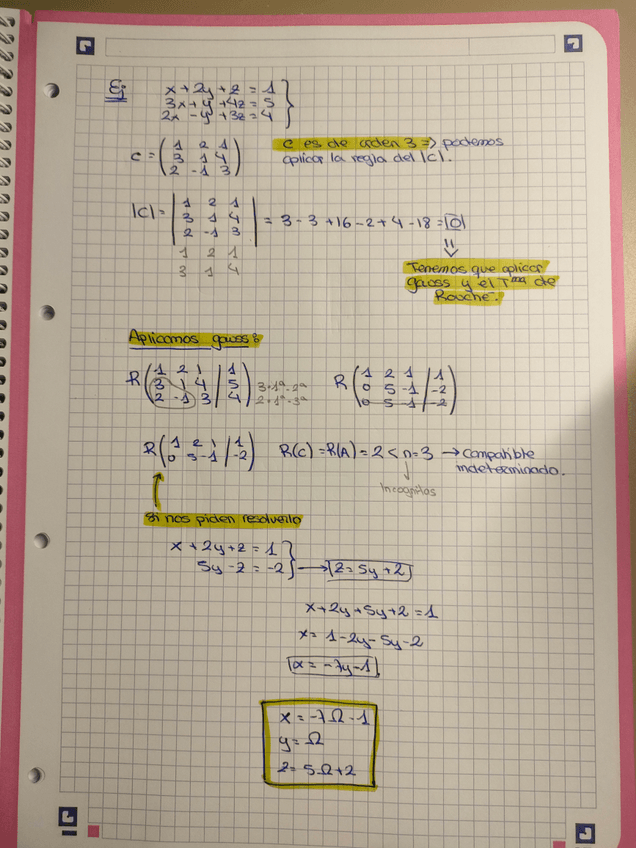 Ej
x + 2y + z = 1
3x + y + 4z = 5
2x - y + 3z = 4
C = ( 1 2 1
3 1 4
2 -1 3 )
C es de orden 3 => podemos
aplicar la regla del |C|.
|C| = | 1 2 1
3 1 4
2 -1 3 | = 3 - 3 + 16 - 2 + 4 - 18 = |0|
1 2 1
3 1 4
Tenemos que aplicar
gauss y el Tma de
Rouché.
Aplicamos gauss:
R ( 1 2 1 | 1
3 1 4 | 5 3·1ª-2ª
2 -1 3 | 4 ) 2·1ª-3ª
R ( 1 2 1 | 1
0 5 -1 | -2
0 5 -1 | -2 )
R ( 1 2 1 | 1
0 5 -1 | -2 )
R(C) = R(A) = 2 < n = 3 → compatible
indeterminado.
Incognitas
Si nos piden resolverlo
x + 2y + z = 1
5y - z = -2 → z = 5y + 2
x + 2y + 5y + 2 = 1
x = 1 - 2y - 5y - 2
x = -7y - 1
x = -7Ω - 1
y = Ω
z = 5Ω + 2